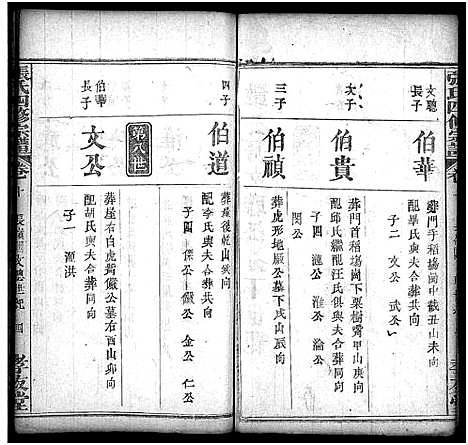 張氏四修宗譜 卷
文聰
長子
伯華
葬門手稻場崗中截丑山未向
配畢氏與夫合葬共向
子二 文公 武公
次子
伯貴
葬門首稻場崗下栗樹觜甲山庚向
配邱氏繼配汪氏俱與夫合葬同向
子四 淮公 淪公
三子
伯禎
葬虎形地嚴公墓下戌山辰向
閔公
四子
伯道
配李氏與夫合葬共向
子四 公 儼公 金公 仁公
第八世
伯華
長子
文公
葬屋右白虎觜儼公墓右酉山卯向
配胡氏與夫合葬同向
子一 源洪
張氏四修宗譜 卷十
孝友堂